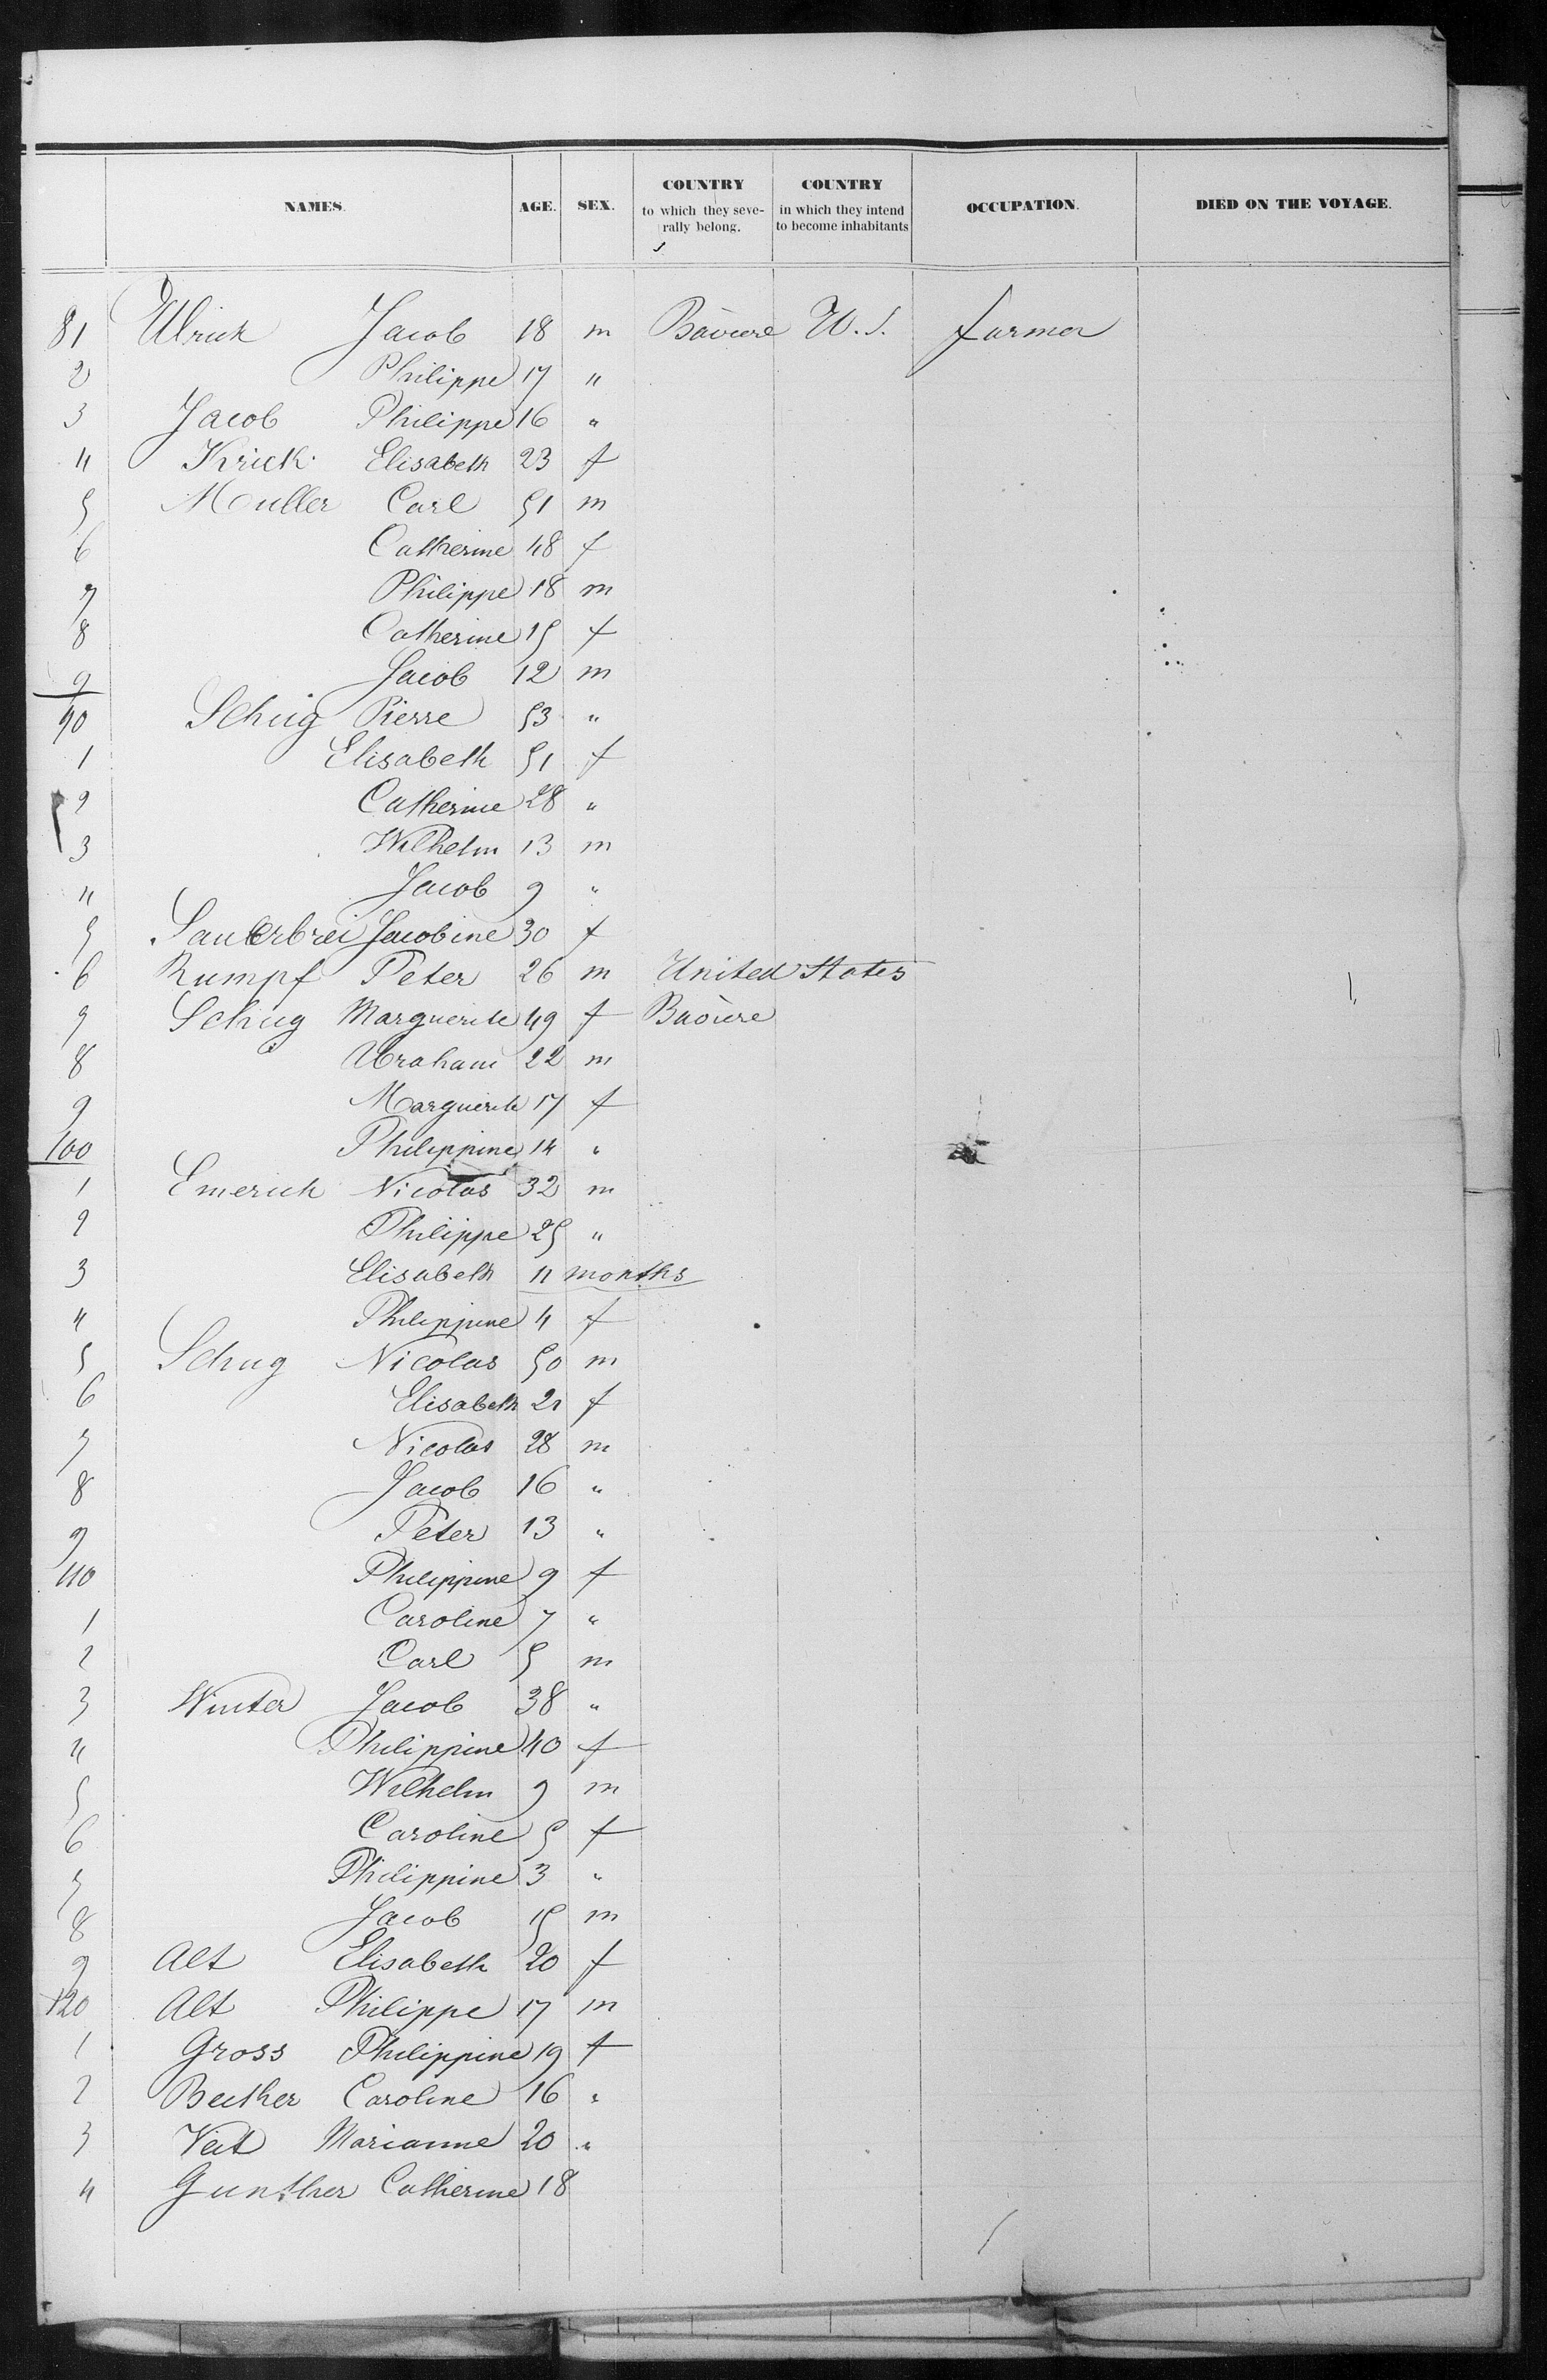 NAMES. AGE. SEX. COUNTRY to which they severally belong. COUNTRY in which they intend to become inhabitants OCCUPATION. DIED ON THE VOYAGE.
81 Ulrich Jacob 18 m Bavière U.S. farmer
2 Philippe 17 "
3 Jacob Philippe 16 "
4 Krick Elisabeth 23 f
5 Muller Carl 51 m
6 Catherine 48 f
7 Philippe 18 m
8 Catherine 15 f
9 Jacob 12 m
90 Schug Pierre 53 "
1 Elisabeth 51 f
2 Catherine 28 "
3 Wilhelm 13 m
4 Jacob 9 "
5 Sauerbrei Jacobine 30 f
6 Rumpf Peter 26 m United States
7 Schug Marguerite 49 f Bavière
8 Abraham 22 m
9 Marguerite 17 f
100 Philippine 14 "
1 Emerich Nicolas 32 m
2 Philippe 25 "
3 Elisabeth 11 months
4 Philippine 4 f
5 Schug Nicolas 50 m
6 Elisabeth 21 f
7 Nicolas 28 m
8 Jacob 16 "
9 Peter 13 "
110 Philippine 9 f
1 Caroline 7 "
2 Carl 5 m
3 Winter Jacob 38 "
4 Philippine 40 f
5 Wilhelm 9 m
6 Caroline 5 f
7 Philippine 3 "
8 Jacob 15 m
9 Alt Elisabeth 20 f
120 Alt Philippe 17 m
1 Gross Philippine 19 f
2 Becther Caroline 16 "
3 Veit Marianne 20 "
4 Gunther Catherine 18